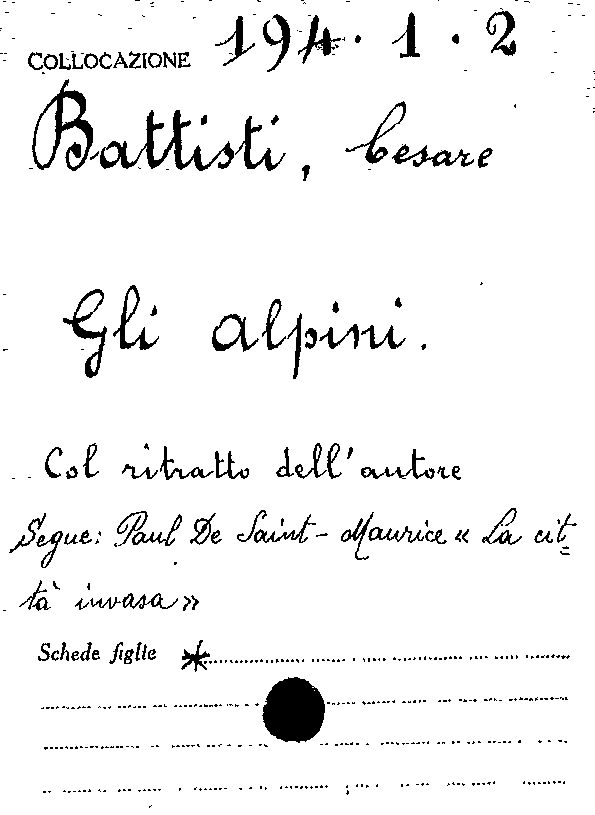 COLLOCAZIONE 194.1.2
Battisti, Cesare
Gli alpini.
Col ritratto dell'autore
Segue: Paul De Saint-Maurice « La cit=
tà invasa »
Schede figlie *